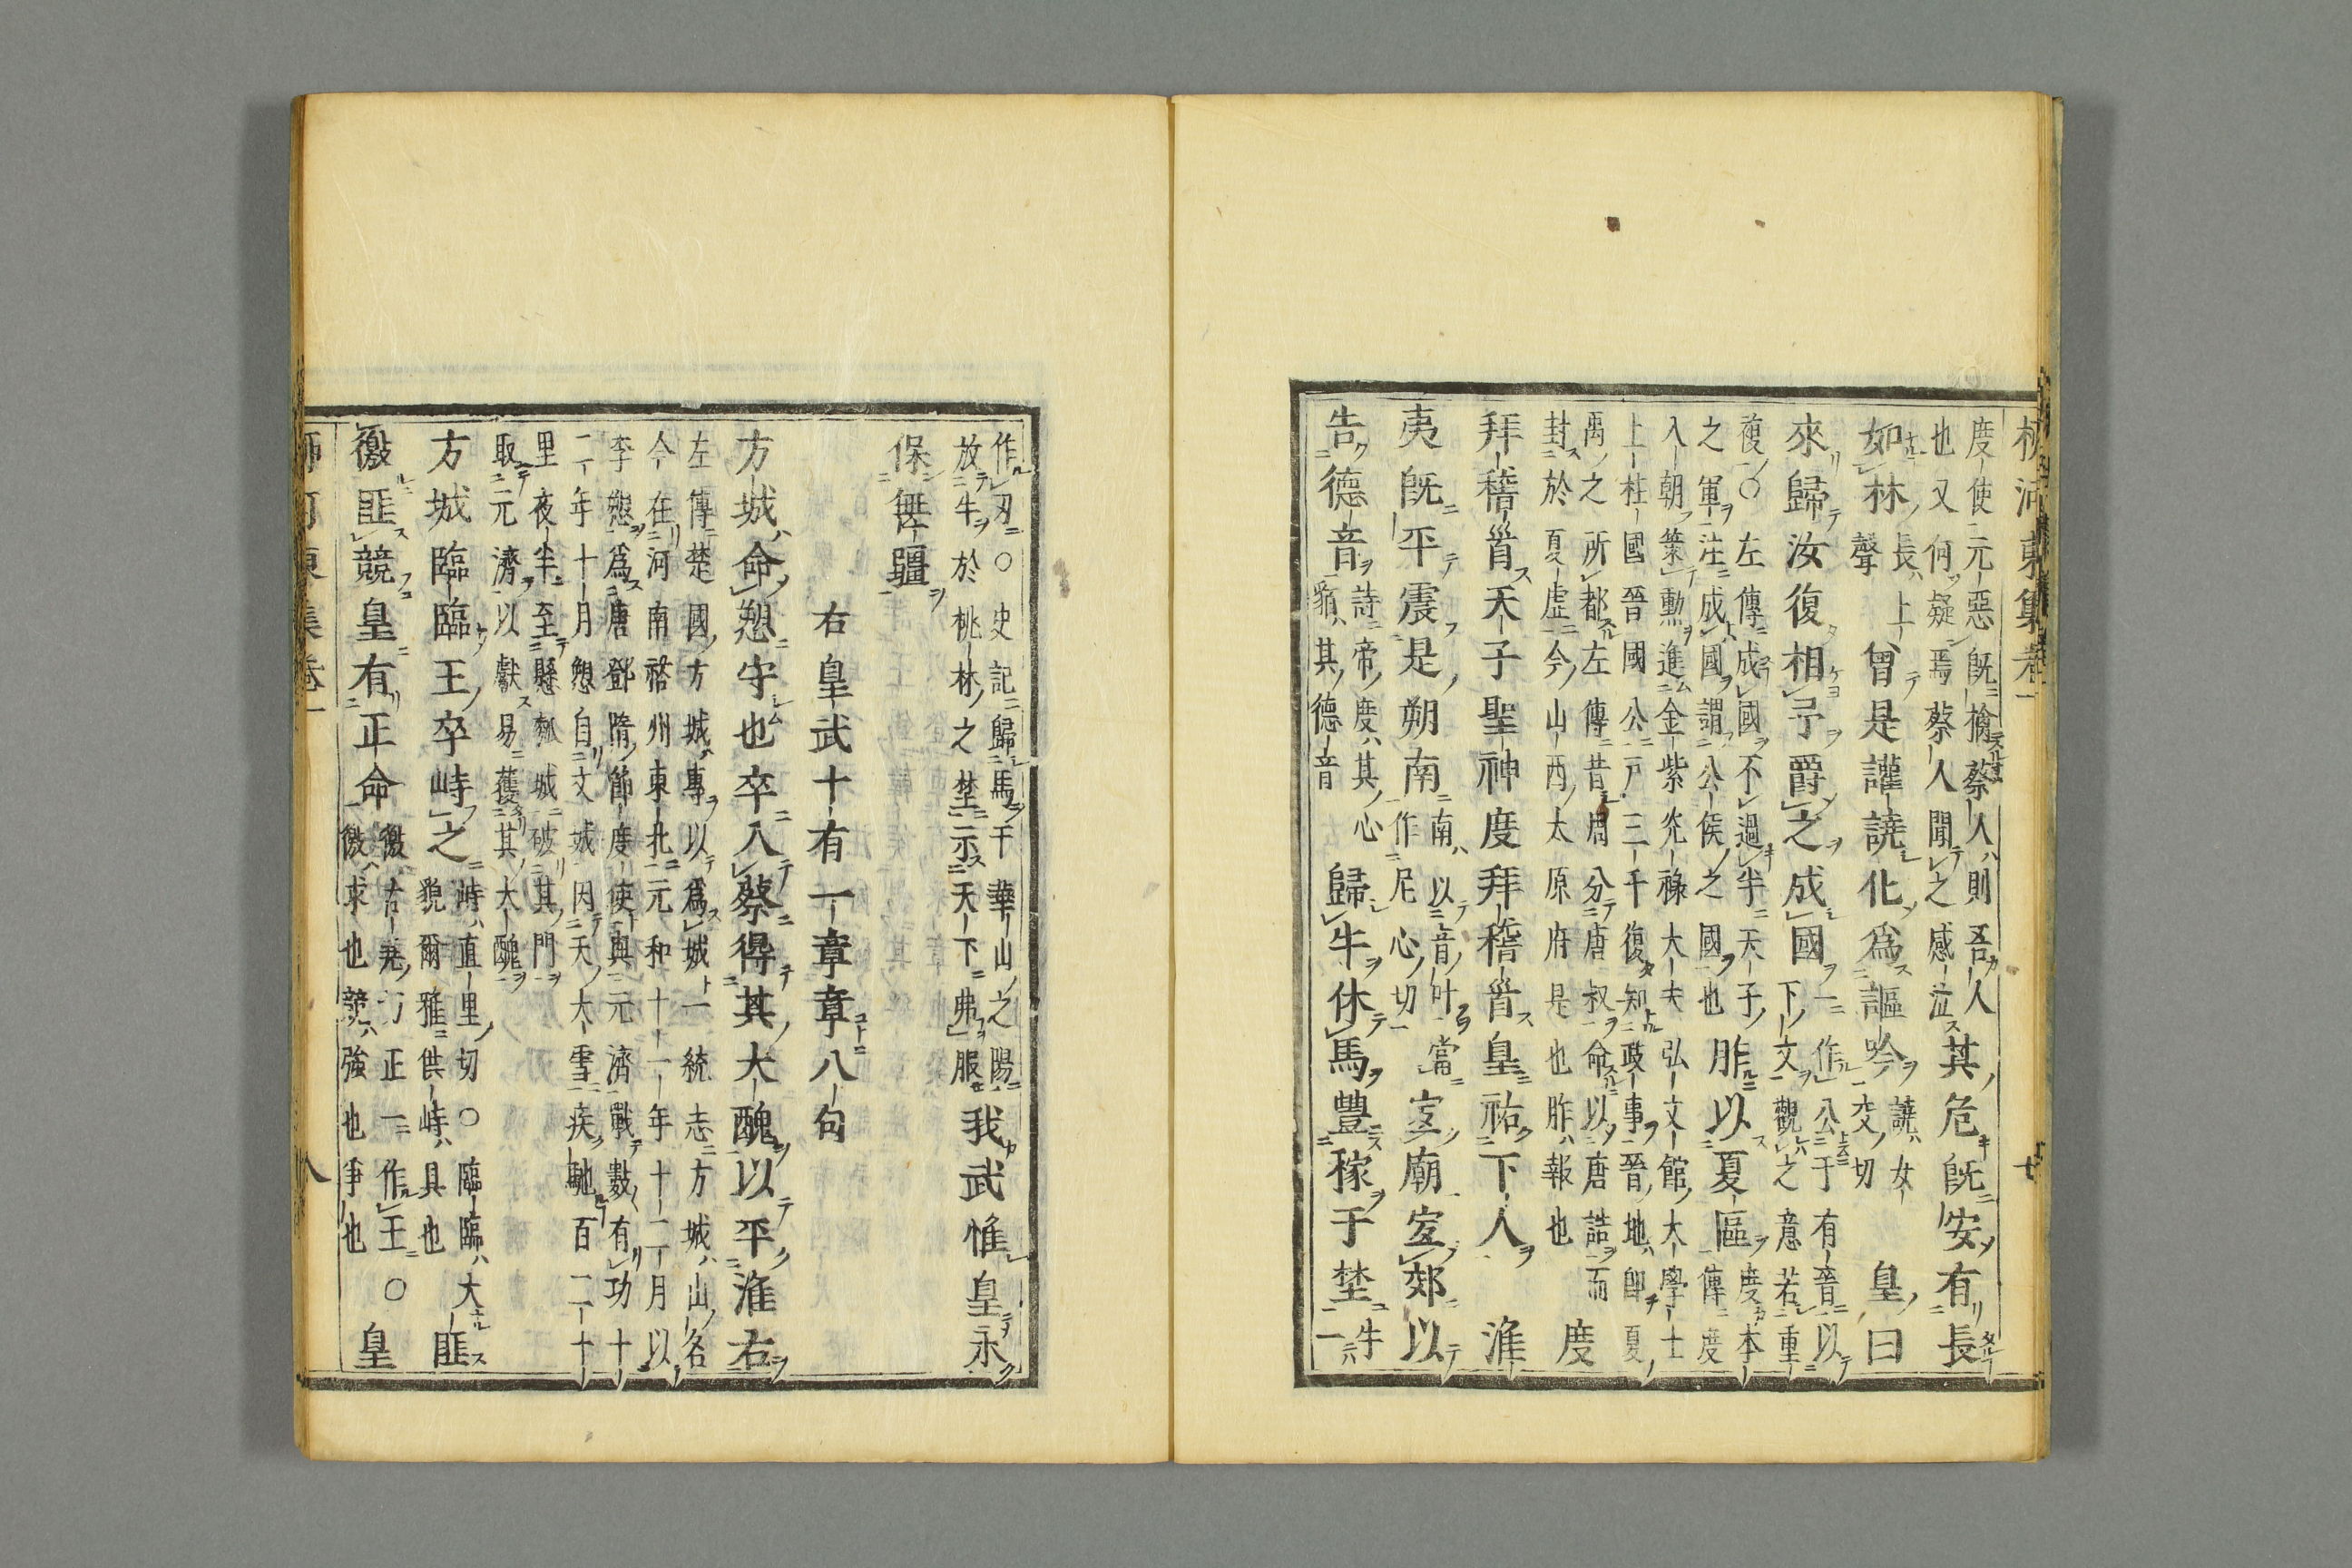 柳河東集卷一 七
度使元惡既擒蔡人則吾人
也又何疑焉蔡人聞之感泣
其危既安有長
如林
長上
聲
曾是讙譊化爲謳吟
譊女
交切
皇曰
來歸汝復相予爵之成國
一作公于有晉以
下文觀之意若重
複○左傳成國不過半天子
之軍注成國謂公侯之國也
胙以夏區
度本
傳度
入朝策勳進金紫光祿大夫弘文館大學士
上柱國晉國公戶三千復知政事晉地即夏
禹之所都左傳昔周分唐叔命以唐誥而
封於夏虛今山西太原府是也胙報也
度
拜稽首天子聖神度拜稽首皇祐下人 淮
夷既平震是朔南
南以音叶當
作尼心切
宜廟宜郊以
告德音
詩帝度其心
貊其德音
歸牛休馬豐稼于埜
牛
一
作刃○史記歸馬于華山之陽
放牛於桃林之埜示天下弗服
我武惟皇永
保無疆
右皇武十有一章章八句
方城命愬守也卒入蔡得其大醜以平淮右
左傳楚國方城專以爲城一統志方城山名
今在河南裕州東北元和十一年十二月以
李愬爲唐鄧隋節度使與元濟戰數有功十
二年十月愬自文城因天大雪疾馳百二十
里夜半至懸瓠城破其門
取元濟以獻易獲其大醜
方城臨臨王卒峙之
峙直里切○臨臨大
貌爾雅供峙具也
匪
徼匪競皇有正命
徼古堯切正一作王
徼求也競強也爭也
○皇
柳河東集卷一 八